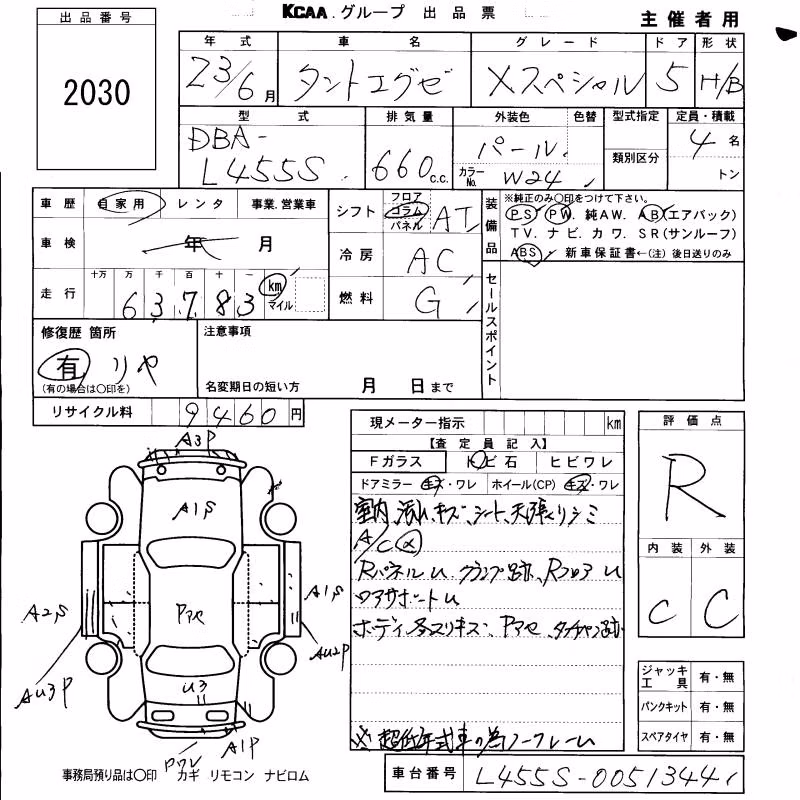 KCAA.グループ 出品票
主催者用
出品番号
2030
年式 車名 グレード ドア 形状
23/6月 タントエグゼ Xスペシャル 5 H/B
型式 排気量 外装色 色替 型式指定 定員・積載
DBA-
L455S 660c.c. パール 4名
カラーNo. W24 類別区分 トン
車歴 自家用 レンタ 事業.営業車
シフト フロア コラム パネル AT
装備品 ※純正のみ○印をつけて下さい。
PS PW. 純AW. AB(エアバック)
TV. ナビ. カワ. SR(サンルーフ)
ABS 新車保証書←(注) 後日送りのみ
車検 年 月
冷房 AC
走行 十万 万 千 百 十 一
63,783 km マイル
燃料 G
セールスポイント
修復歴 箇所
有 リヤ
(有の場合は○印を)
注意事項
名変期日の短い方 月 日まで
リサイクル料 9460円
現メーター指示 km
【査定員記入】
Fガラス トビ石 ヒビワレ
ドアミラー キズ・ワレ ホイール(CP) キズ・ワレ
室内 汚レ キズ、シート、天張リシミ
A/C
Rパネルu クランプ跡、Rフロアu
ロアサポートu
ボディ各スリキズ、Pアセ、
※超低年式車の為ノークレーム
評価点
R
内装 外装
C C
ジャッキ工具 有・無
パンクキット 有・無
スペアタイヤ 有・無
A3P
A1S
A2S
A1S
Pアセ
AU2P
AU3P
U3
Pワレ
A1P
事務局預り品は○印 カギ リモコン ナビロム
車台番号 L455S-0051344